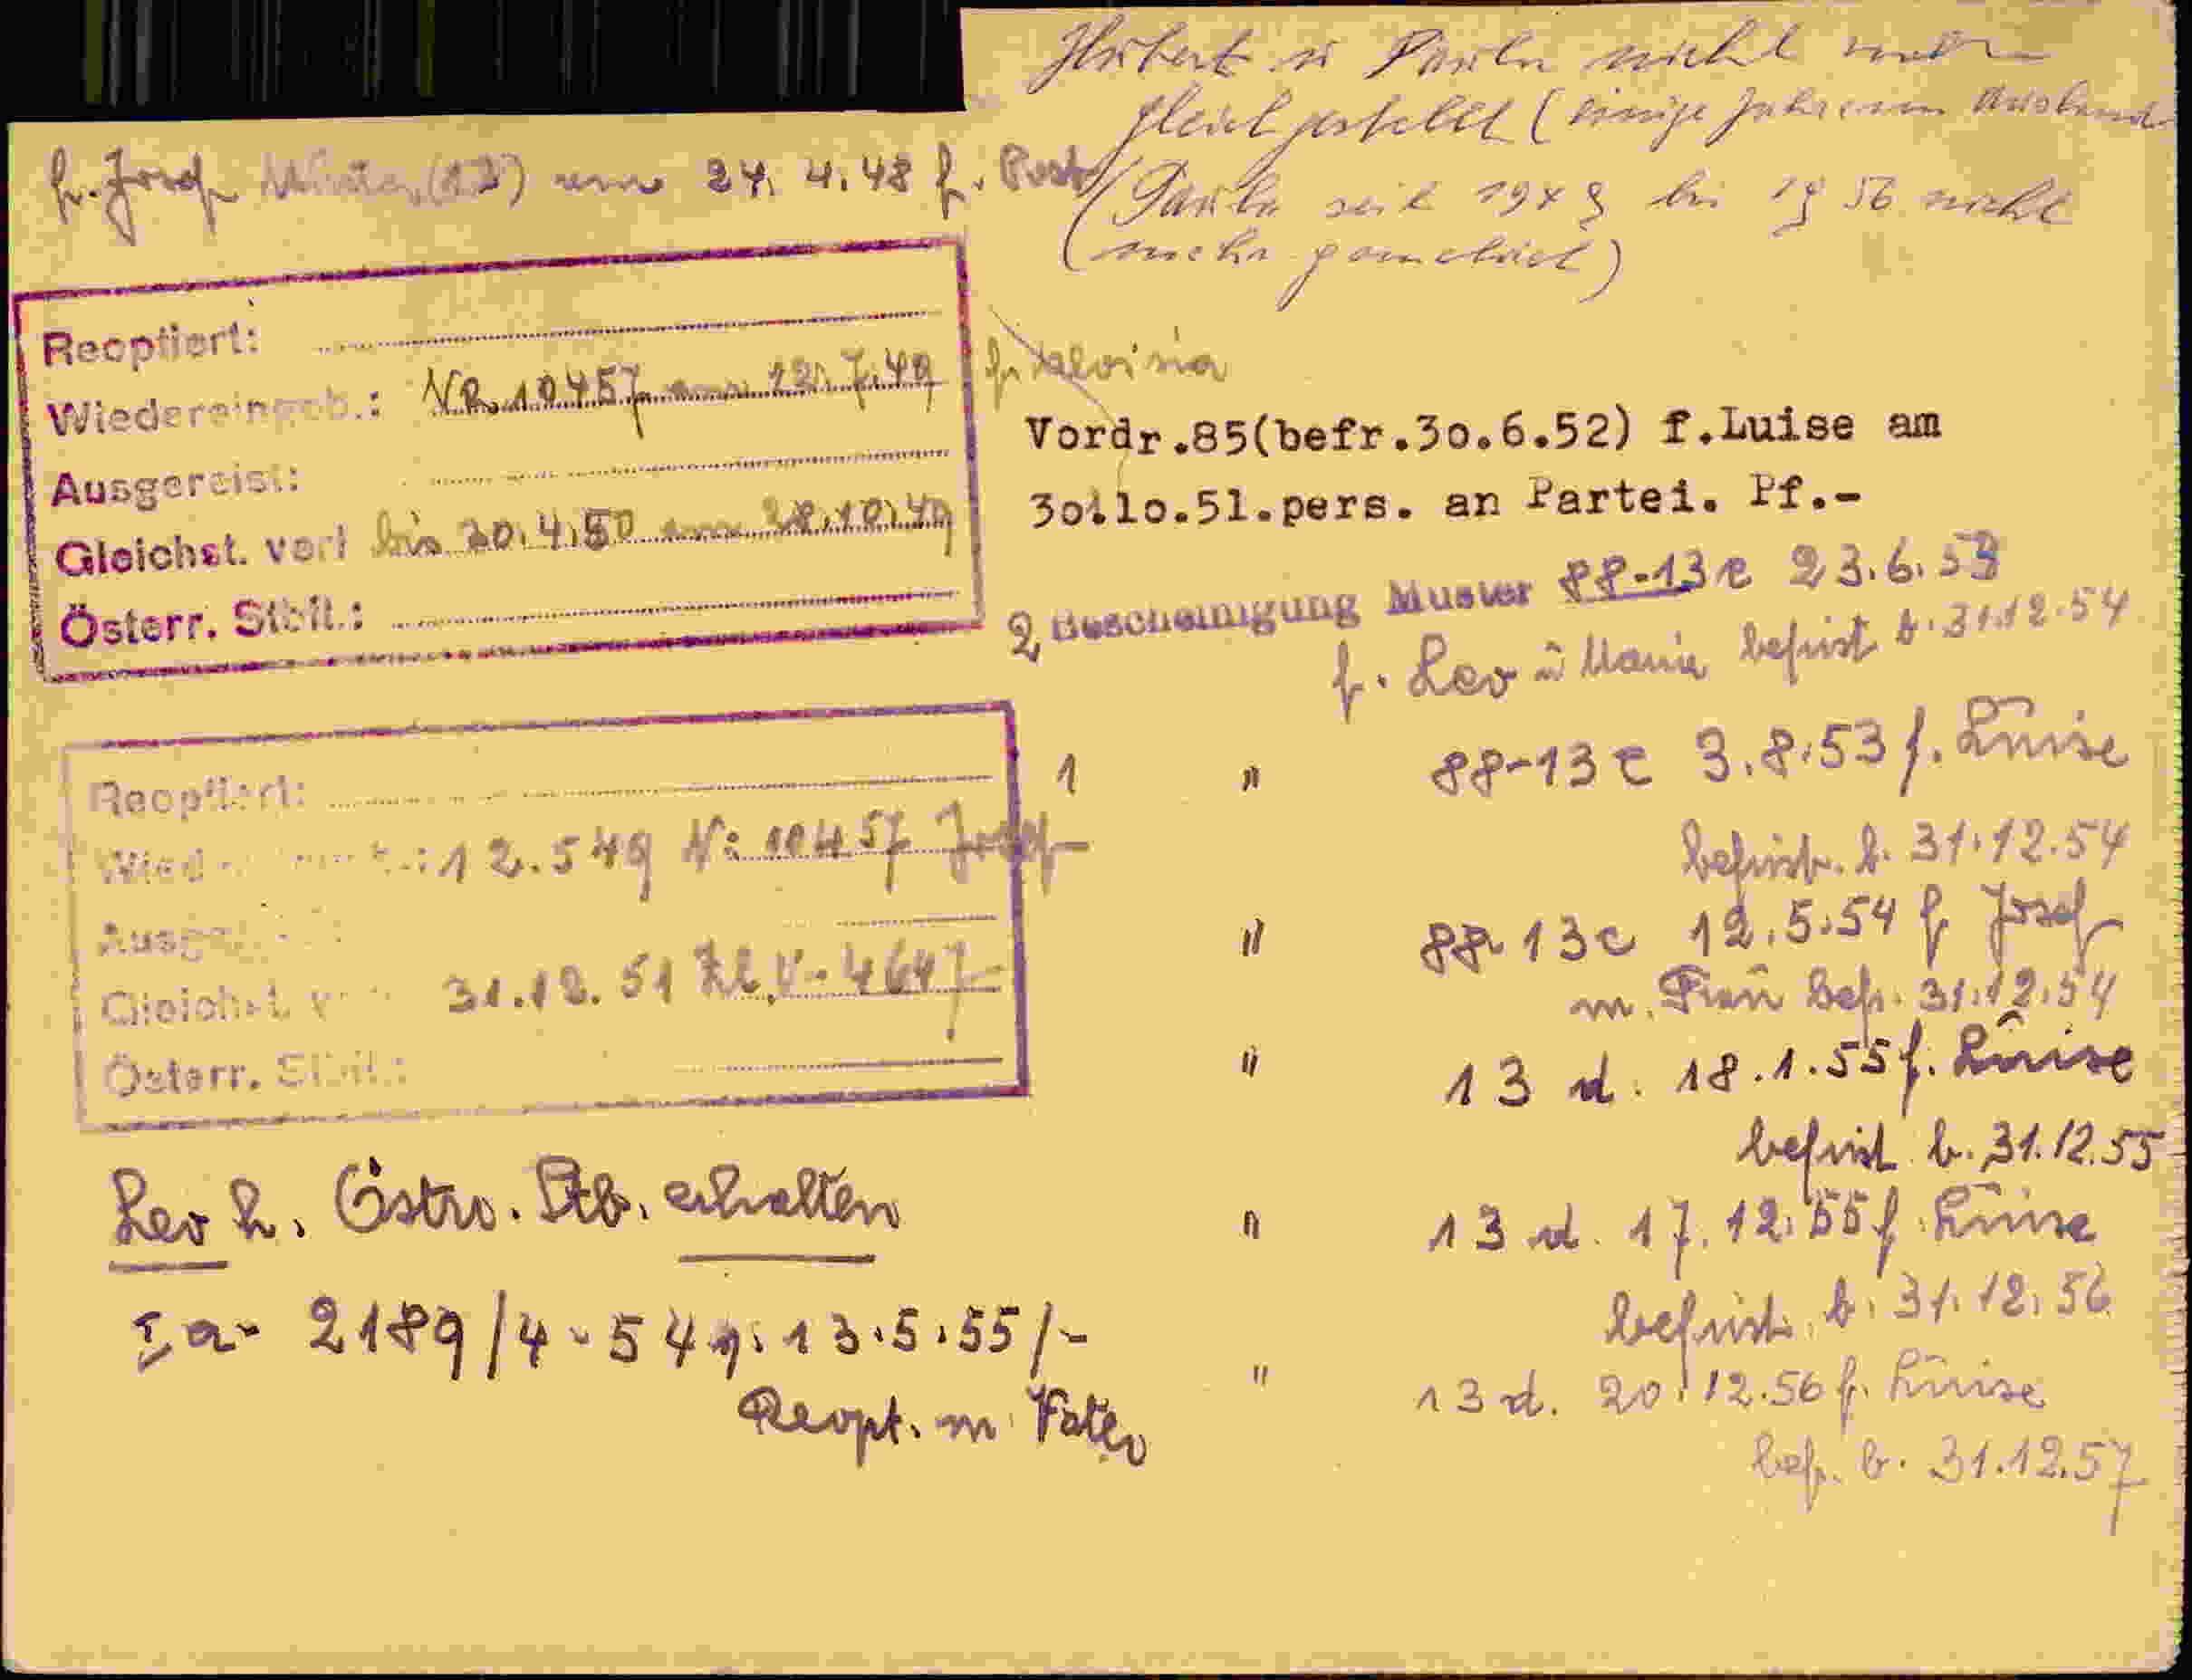 Hubert u Paula nicht mehr
gleichgestellt (einige Jahre im Ausland
(Paula seit 1948 bis 1956 nicht
(mehr gemeldet)
f. Josef am 24. 4. 48 f. Post
Reoptiert:
Wiedereingeb.: NR. 10457 am 12. 7. 49
Ausgereist:
Gleichst. verl bis 30. 4. 50 am 28. 10. 49
Österr. Stbll.:
f. Aloisia
Vordr.85(befr.30.6.52) f.Luise am
30.10.51.pers. an Partei. Pf.-
2 Bescheinigung Muster 88-13c 23. 6. 53
f. Leo u Maria befrist b. 31.12.54
1 " 88-13c 3. 8. 53 f. Luise
befrist. b. 31.12.54
" 88-13c 12. 5. 54 f Josef
m. Frau Befr. 31.12.54
" 13 d. 18. 1. 55 f. Luise
befrist b. 31.12.55
" 13 d. 17. 12. 55 f. Luise
befrist. b. 31. 12. 56
" 13 d. 20. 12. 56 f. Luise
befr. b. 31.12.57
Reoptiert:
12. 5 49 N: 10457 Josef
Gleichst. 31. 12. 51 Zl. V- 4647
Österr. Stbll.:
Leo h. Östrr. Stb. erhalten
Ia- 2189/4-54 v. 13. 5. 55/-
Reopt. m Vater